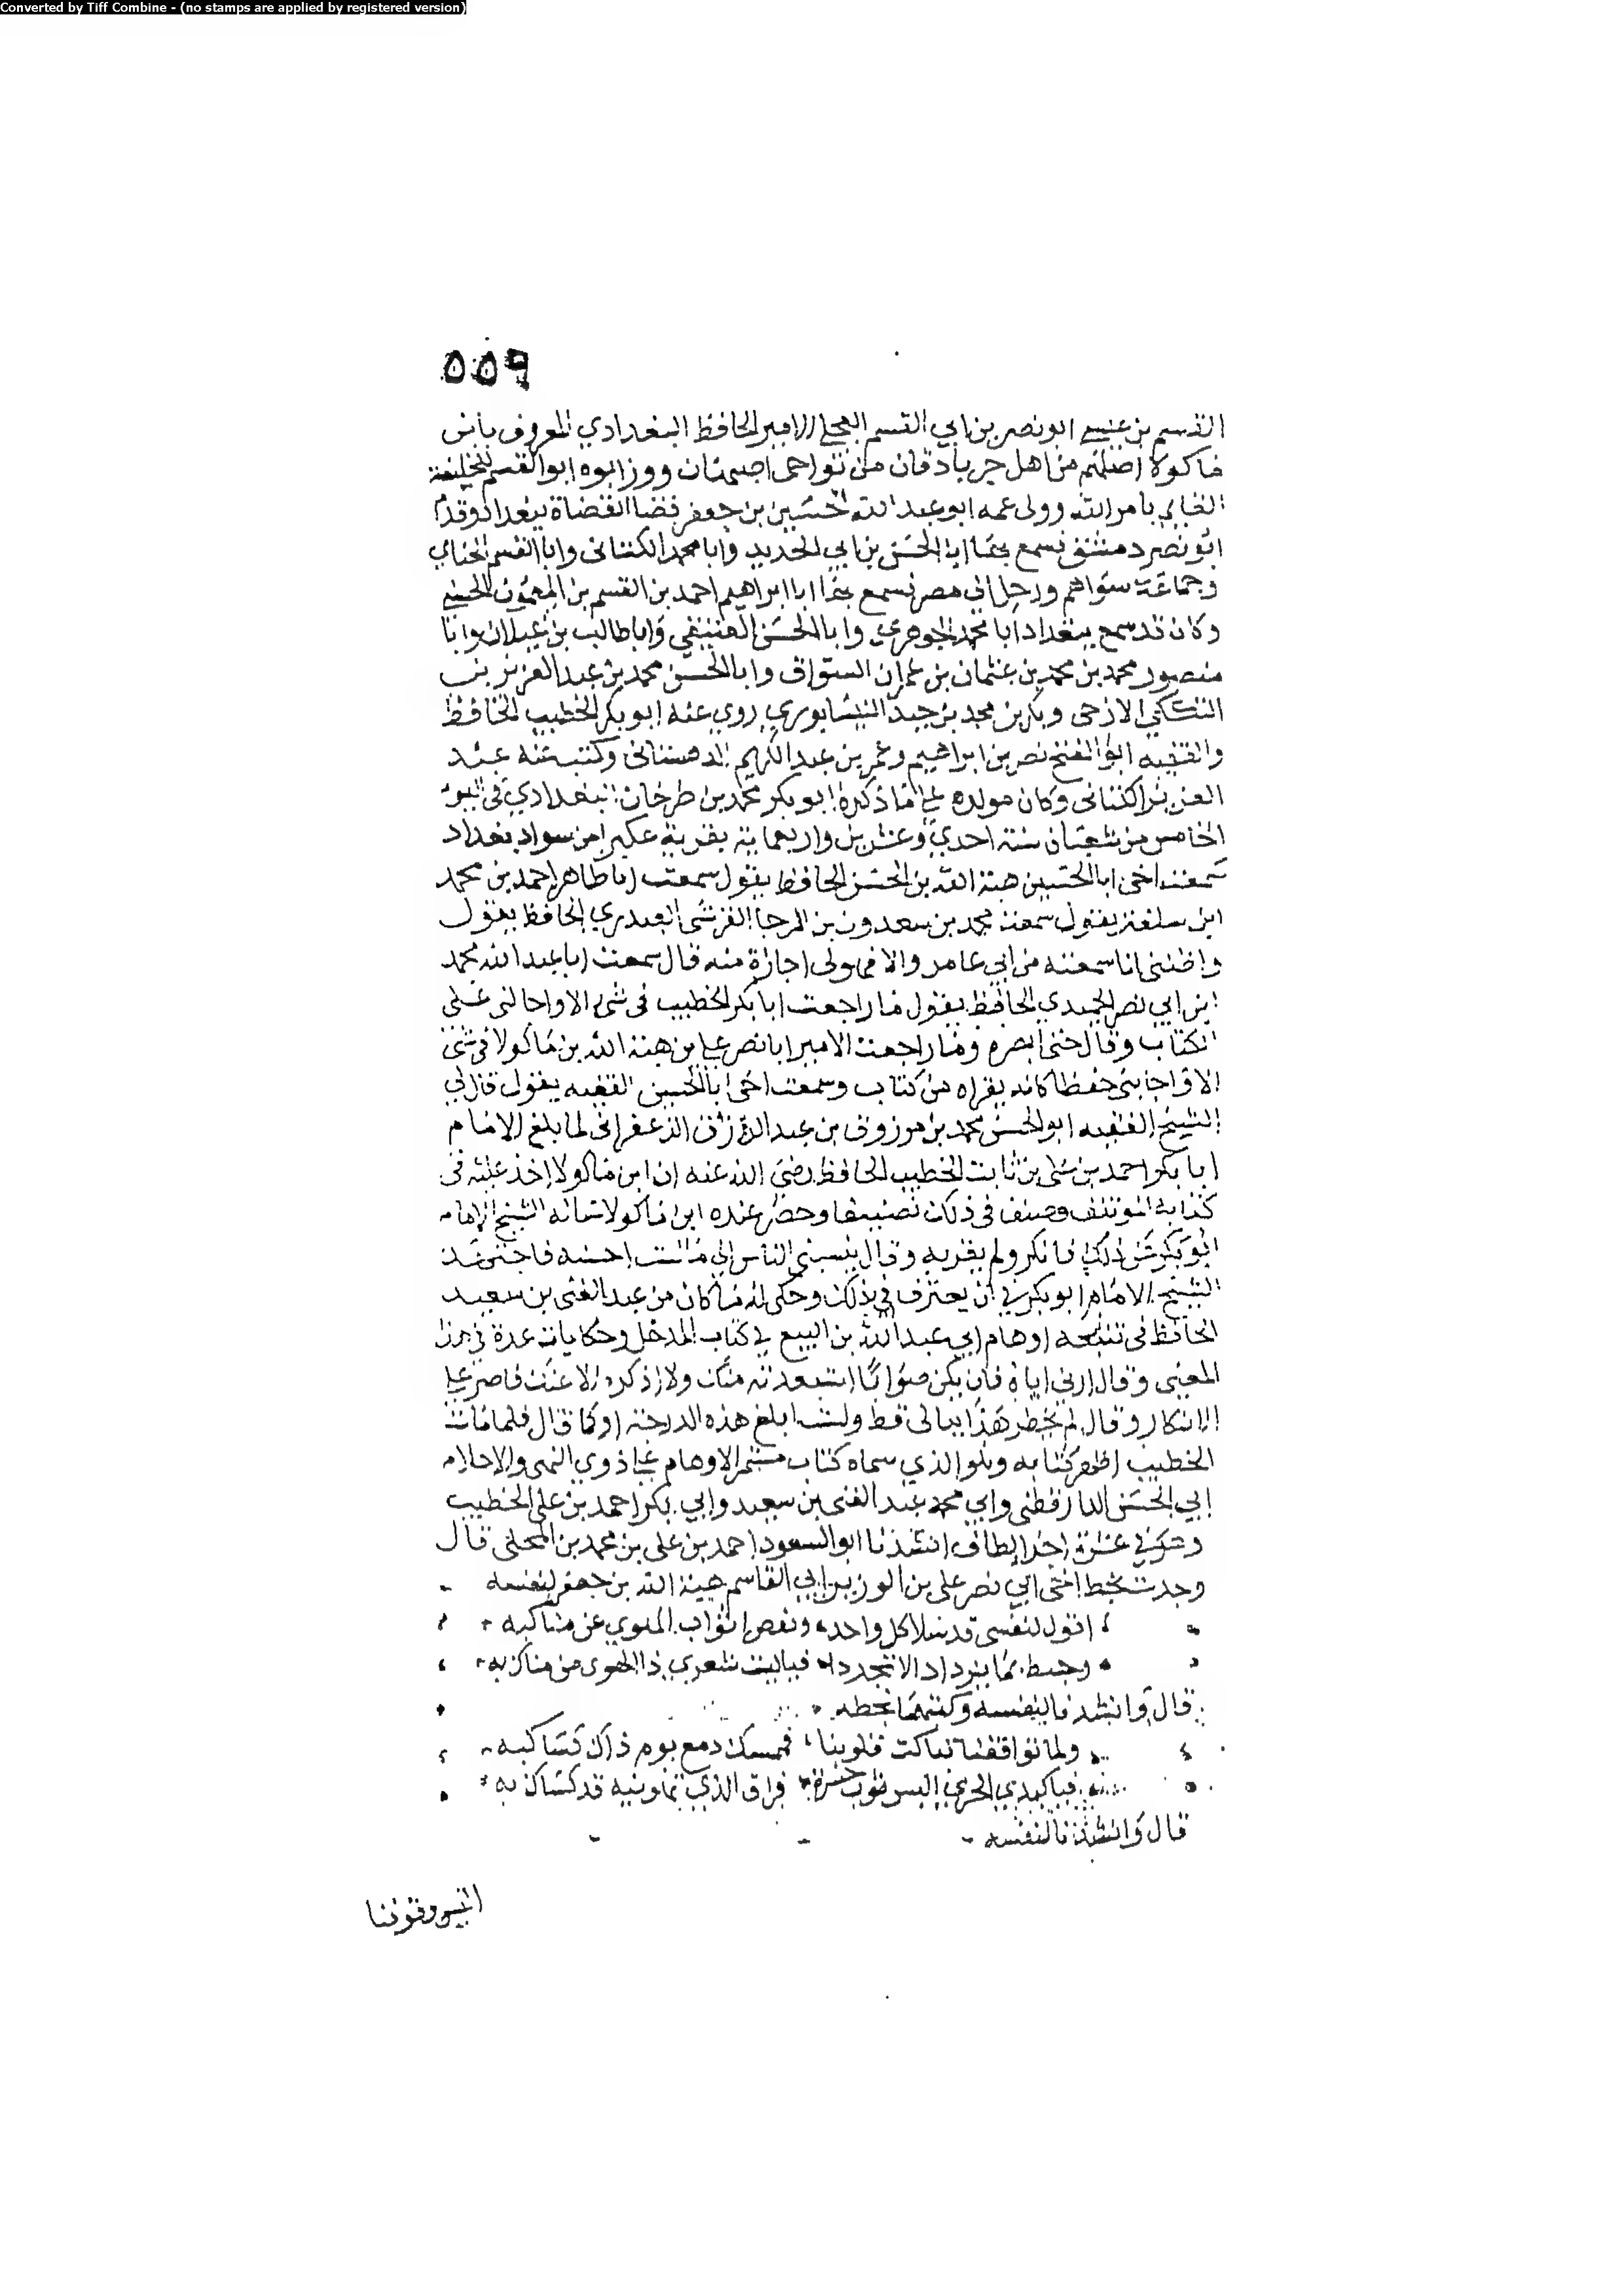 Converted by Tiff Combine - (no stamps are applied by registered version)
٥٥٩
القسم بن عيسى ابو نصر بن ابي القسم العجلي الامير الحافظ البغدادي المعروف بابن
ماكولا اصلهم من اهل جرباذقان من نواحي اصبهان ووزر ابوه ابو القسم للخليفة
القايم بامر الله وولى عمه ابو عبد الله الحسين بن جعفر قضا القضاة ببغداد وقدم
ابو نصر دمشق فسمع بها ابا الحسن بن ابي الحديد وابا محمد الكتاني وابا القسم الحنائي
وجماعة سواهم ورحل الى مصر فسمع بها ابا ابراهيم احمد بن القسم بن الميمون الحسيني
وكان قد سمع ببغداد ابا محمد الجوهري وابا الحسن العتيقي وابا طالب بن غيلان وابا
منصور محمد بن محمد بن عثمان بن عمران السواق وابا الحسن محمد بن عبد العزيز بن
التككي الازجي وبكر بن محمد بن حيد النيسابوري روي عنه ابو بكر الخطيب الحافظ
والفقيه ابو الفتح نصر بن ابراهيم وعمر بن عبد الكريم الدهستاني وكتب عنه عبد
العزيز الكتاني وكان مولده على ما ذكره ابو بكر محمد بن طرخان البغدادي في اليوم
الخامس من شعبان سنة احدي وعشرين واربعماية بقرية عكبرا من سواد بغداد
سمعت اخي ابا الحسين هبة الله بن الحسن الحافظ يقول سمعت ابا طاهر احمد بن محمد
ابن سلفة يقول سمعت محمد بن سعدون بن المرجا القرشي العبدري الحافظ يقول
واظنني انا سمعته من ابي عامر والا فهو لي اجازة منه قال سمعت ابا عبد الله محمد
ابن ابي نصر الحميدي الحافظ يقول ما راجعت ابا بكر الخطيب في شي الا واحالني على
الكتاب وقال حتى ابصره وما راجعت الامير ابا نصر علي بن هبة الله بن ماكولا في شي
الا واجابني حفظا كانه يقراه من كتاب وسمعت اخي ابا الحسين الفقيه يقول قال لي
الشيخ الفقيه ابو الحسن محمد بن مرزوق بن عبد الرزق الزعفراني لما بلغ الامام
ابا بكر احمد بن على بن ثابت الخطيب الحافظ رضي الله عنه ان ابن ماكولا اخذ عليه في
كتابه المؤتنف وصنف في ذلك تصنيفا وحضر عنده ابن ماكولا ساله الشيخ الامام
ابو بكر عن ذلك فانكر ولم يقر به وقال ينسبني الناس الى ما لست احسنه فاجتهد
الشيخ الامام ابو بكر في ان يعترف بذلك وحكى له ما كان من عبد الغني بن سعيد
الحافظ في تتبعه اوهام ابي عبد الله بن البيع في كتاب المدخل وحكايات عدة في هذا
المعنى وقال ارني اياه فان يكن صوابا استفدته منك ولا اذكره الا عنك فاصر على
الانكار وقال لم يخطر هذا ببالي قط ولست ابلغ هذه الدرجة او كما قال فلما مات
الخطيب اظهر كتابه وهو الذي سماه كتاب مستمر الاوهام على ذوي النهى والاحلام
ابي الحسن الدارقطني وابي محمد عبد الغني بن سعيد وابي بكر احمد بن على الخطيب
وهو في عشرة اجزا لطاف انشدنا ابو السعود احمد بن على بن محمد بن المجلى قال
وجدت بخط اخي ابي نصر على بن الوزير ابي القاسم هبة الله بن جعفر لنفسه
اقول لنفسي قد سلا كل واحد ونفض اثواب الهوي عن مناكبه
وحبك ما يزداد الا تجددا فياليت شعري ذا الهوى من مناك به
قال وانشدنا لنفسه وكتبهما بخطه
ولما تواقفنا تباكت قلوبنا فممسك دمع يوم ذاك كساكبه
فيا كبدي الحري البسي ثوب حسرة فراق الذي تهوينه قد كساك به
قال وانشدنا لنفسه